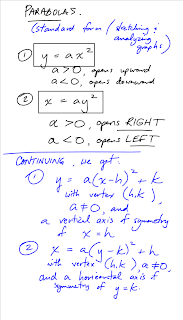 PARABOLAS.
(standard form / stretching &
analyzing
graphs)
① y = ax²
a > 0, opens upward
a < 0, opens downward
② x = ay²
a > 0, opens RIGHT
a < 0, opens LEFT
CONTINUING, we get
① y = a(x-h)² + k
with vertex (h,k)
a ≠ 0, and
a vertical axis of symmetry
of x = h
② x = a(y-k)² + h
with vertex (h,k) a ≠ 0,
and a horizontal axis of
symmetry of y = k.